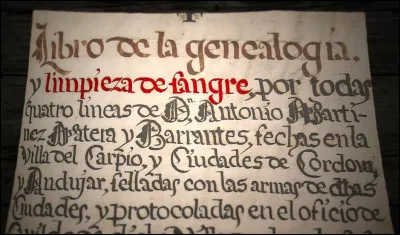 Libro de la genealogia,
y limpieza de sangre, por todas
quatro lineas de Dn. Antonio Marti-
nez Matera, y Barrantes, fechas en la
Villa del Carpio, y Ciudades de Cordova,
y Andujar, selladas con las armas de dhas
Ciudades, y protocoladas en el oficio de